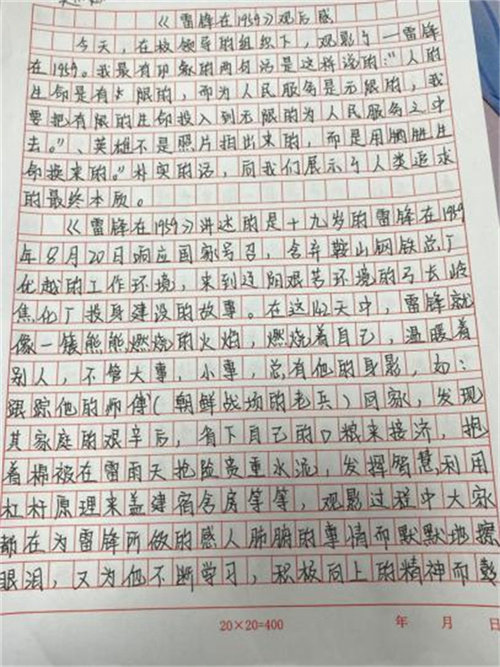 《雷锋在1959》观后感
今天，在校领导的组织下，观影了一雷锋
在1959。我最有印象的两句话是这样说的："人的
生命是有限的，而为人民服务是无限的，我
要把有限的生命投入到无限的为人民服务之中
去。"、英雄不是照片拍出来的，而是用牺牲生
命换来的。"朴实的话，向我们展示了人类追求
的最终本质。
《雷锋在1959》讲述的是十九岁的雷锋在1959
年8月20日响应国家号召，舍弃鞍山钢铁总厂
优越的工作环境，来到辽阳艰苦环境的弓长岭
焦化厂投身建设的故事。在这142天中，雷锋就
像一簇熊熊燃烧的火焰，燃烧着自己，温暖着
别人，不管大事，小事，总有他的身影，如：
跟踪他的师傅（朝鲜战场的老兵）回家，发现
其家庭的艰辛后，省下自己的口粮来接济，抱
着棉被在雷雨天抢险贵重水流，发挥智慧，利用
杠杆原理来盖建宿舍房等等，观影过程中大家
都在为雷锋所做的感人肺腑的事情而默默地擦
眼泪，又为他不断学习，积极向上的精神而鼓
20×20=400 年 月 日